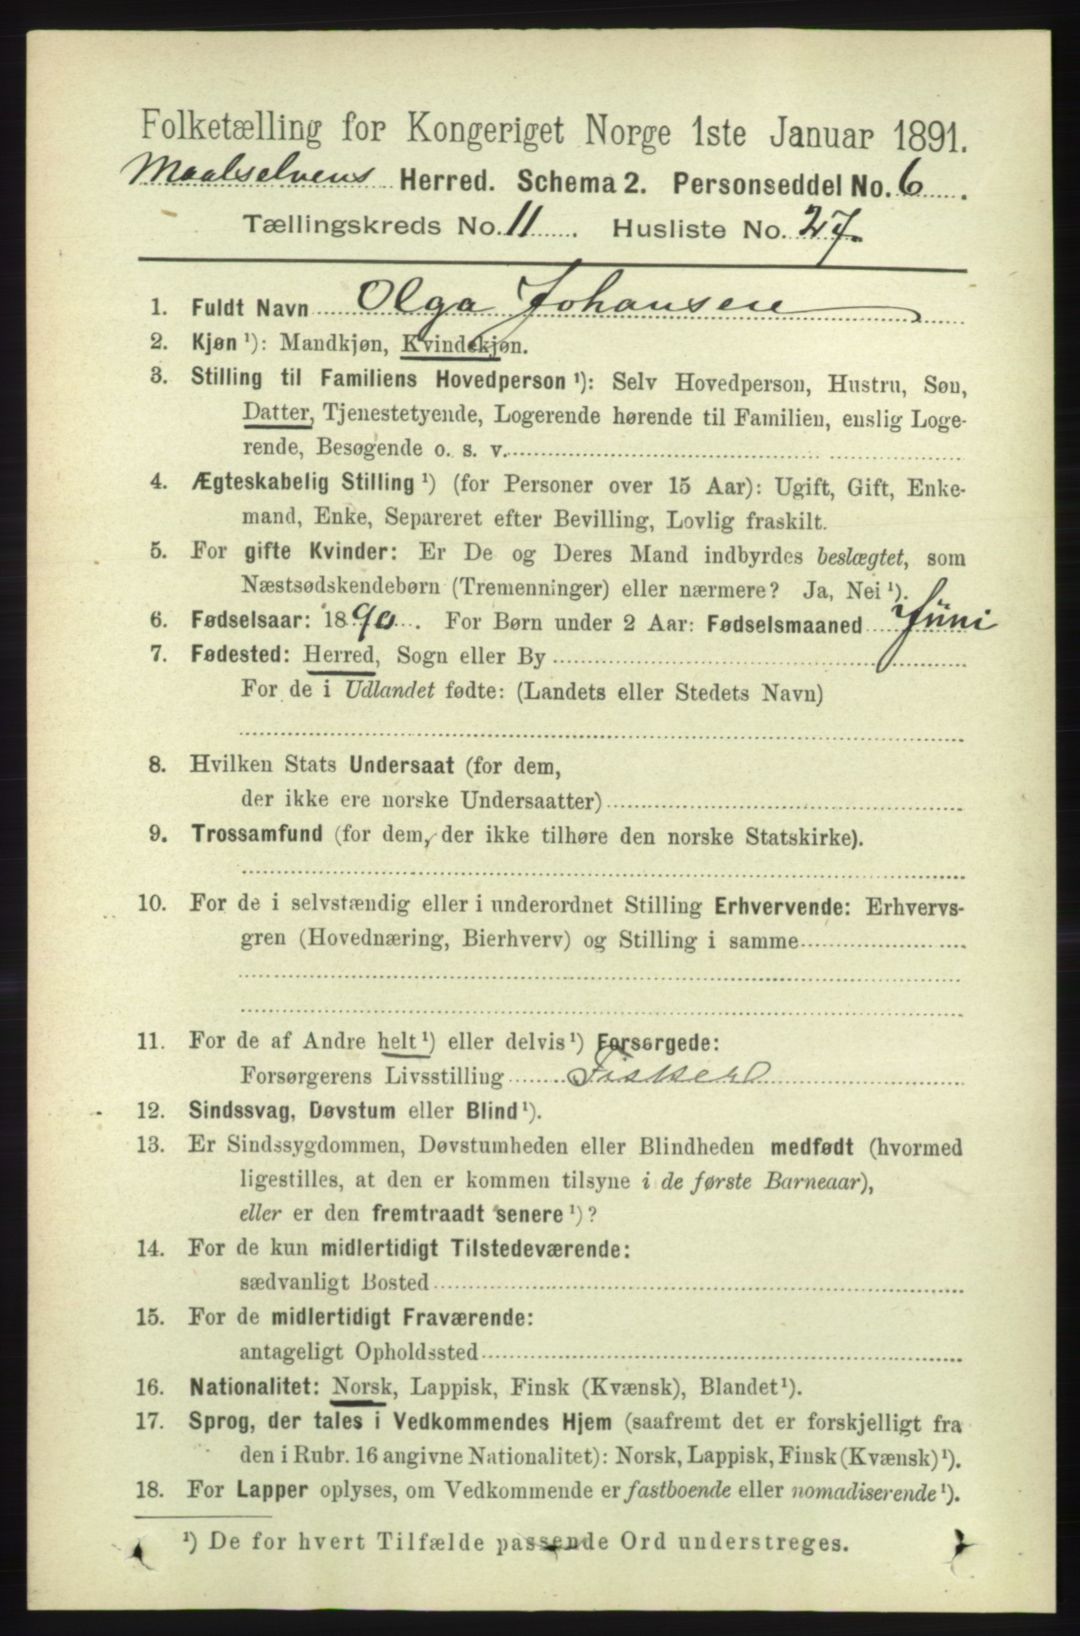 Folketælling for Kongeriget Norge 1ste Januar 1891.
Maalselvens Herred. Schema 2. Personseddel No. 6.
Tællingskreds No. 11. Husliste No. 27.
1. Fuldt Navn Olga Johansen
2. Kjøn ¹): Mandkjøn, Kvindekjøn.
3. Stilling til Familiens Hovedperson ¹): Selv Hovedperson, Hustru, Søn,
Datter, Tjenestetyende, Logerende hørende til Familien, enslig Loge-
rende, Besøgende o. s. v.
4. Ægteskabelig Stilling ¹) (for Personer over 15 Aar): Ugift, Gift, Enke-
mand, Enke, Separeret efter Bevilling, Lovlig fraskilt.
5. For gifte Kvinder: Er De og Deres Mand indbyrdes beslægtet, som
Næstsødskendebørn (Tremenninger) eller nærmere? Ja, Nei ¹).
6. Fødselsaar: 1890. For Børn under 2 Aar: Fødselsmaaned Jüni
7. Fødested: Herred, Sogn eller By
For de i Udlandet fødte: (Landets eller Stedets Navn)
8. Hvilken Stats Undersaat (for dem,
der ikke ere norske Undersaatter)
9. Trossamfund (for dem, der ikke tilhøre den norske Statskirke).
10. For de i selvstændig eller i underordnet Stilling Erhvervende: Erhvervs-
gren (Hovednæring, Bierhverv) og Stilling i samme
11. For de af Andre helt ¹) eller delvis ¹) Forsørgede:
Forsørgerens Livsstilling Fisker
12. Sindssvag, Døvstum eller Blind ¹).
13. Er Sindssygdommen, Døvstumheden eller Blindheden medfødt (hvormed
ligestilles, at den er kommen tilsyne i de første Barneaar),
eller er den fremtraadt senere ¹)?
14. For de kun midlertidigt Tilstedeværende:
sædvanligt Bosted
15. For de midlertidigt Fraværende:
antageligt Opholdssted
16. Nationalitet: Norsk, Lappisk, Finsk (Kvænsk), Blandet ¹).
17. Sprog, der tales i Vedkommendes Hjem (saafremt det er forskjelligt fra
den i Rubr. 16 angivne Nationalitet): Norsk, Lappisk, Finsk (Kvænsk) ¹).
18. For Lapper oplyses, om Vedkommende er fastboende eller nomadiserende ¹).
¹) De for hvert Tilfælde passende Ord understreges.